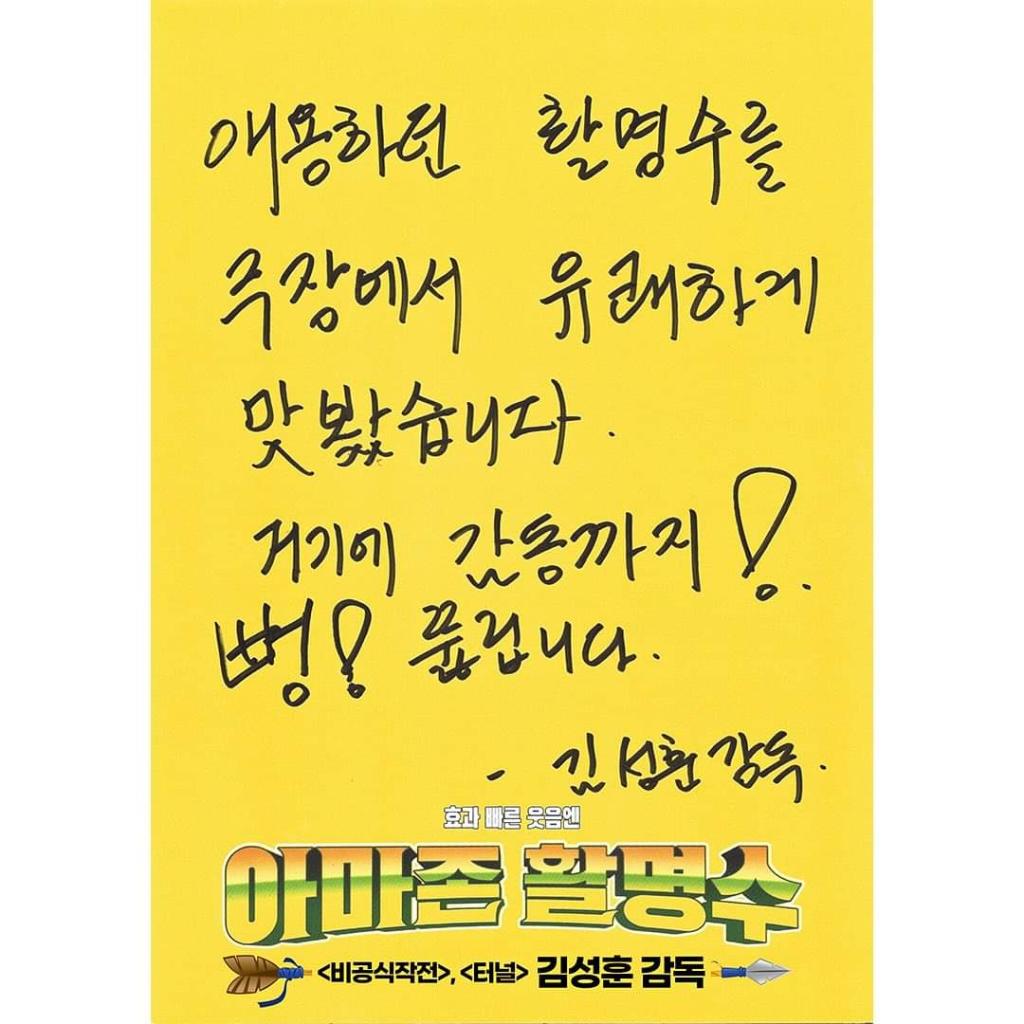 애용하던 활명수를
극장에서 유쾌하게
맛봤습니다.
거기에 감동까지!
뻥! 뚫립니다.
- 김성훈 감독.
효과 빠른 웃음엔
아마존 활명수
<비공식작전>, <터널> 김성훈 감독